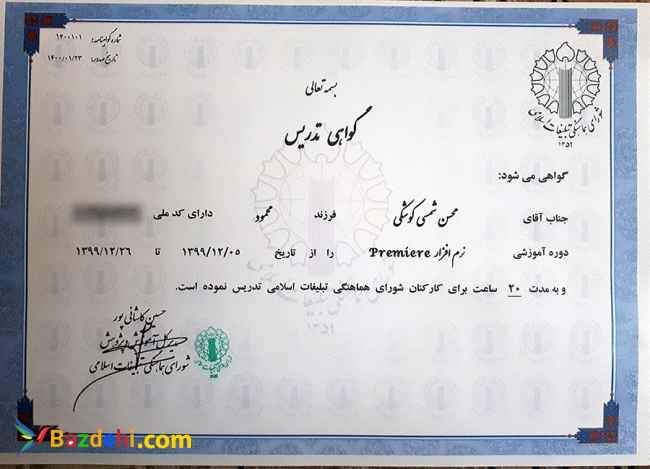 شماره گواهینامه: ۱۴۰۰۱۰۱
تاریخ صدور: ۱۴۰۰/۰۱/۲۳
شورای هماهنگی تبلیغات اسلامی
۱۳۵۹
بسمه تعالی
گواهی تدریس
گواهی می شود:
جناب آقای محسن شمسی کوشکی فرزند محمود دارای کد ملی
دوره آموزشی نرم افزار Premiere را از تاریخ ۱۳۹۹/۱۲/۰۵ تا ۱۳۹۹/۱۲/۲۶
و به مدت ۲۰ ساعت برای کارکنان شورای هماهنگی تبلیغات اسلامی تدریس نموده است.
حسین کاشانی پور
مدیرکل آموزش و پژوهش
شورای هماهنگی تبلیغات اسلامی
Bazdehi.com